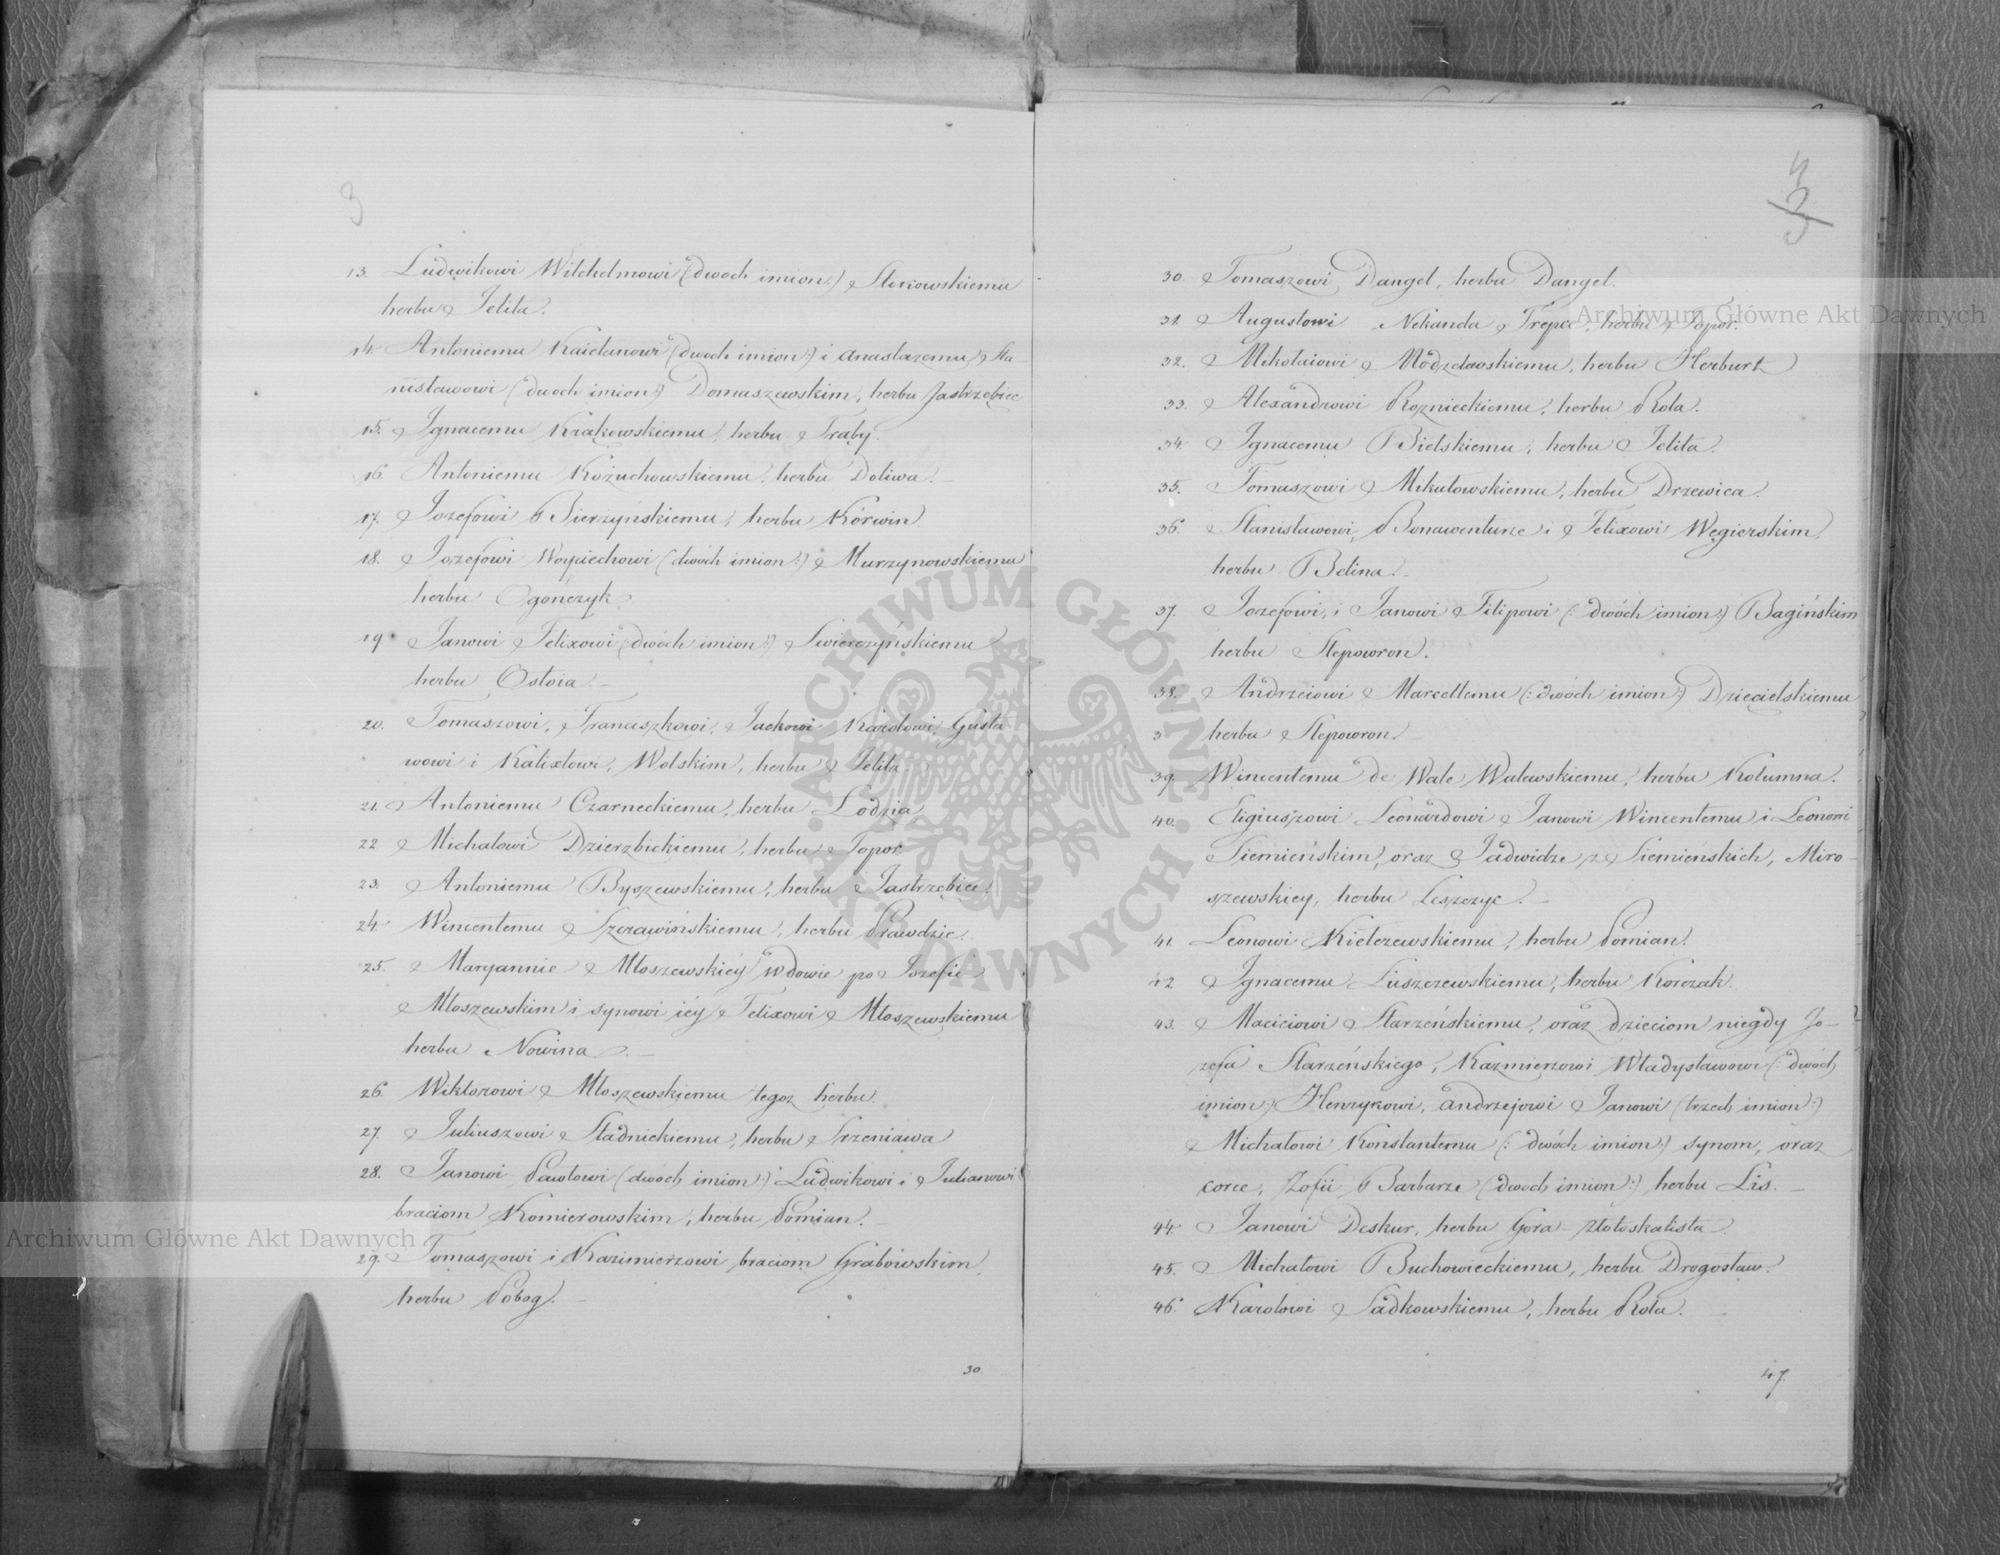 3
13. Ludwikowi Wilchelmowi (dwóch imion:) Stokowskiemu
herbu Jelita.
14. Antoniemu Kaietanowi (dwóch imion:) i Anastazemu Sta-
nisławowi (dwóch imion:) Domaszewskim, herbu Jastrzębiec
15. Ignacemu Krakowskiemu, herbu Trąby.
16. Antoniemu Kożuchowskiemu, herbu Doliwa.
17. Jozefowi Bierzyńskiemu, herbu Korwin.
18. Jozefowi Woyciechowi (dwóch imion:) Murzynowskiemu
herbu Ogończyk.
19. Janowi Felixowi (dwóch imion:) Swierczyńskiemu
herbu Ostoia.
20. Tomaszowi, Franciszkowi, Jackowi Karolowi, Gusta
wowi i Kalixtowi, Wolskim, herbu Jelita.
21. Antoniemu Czarneckiemu, herbu Łodzia
22 Michałowi Dzierzbickiemu, herbu Topor.
23. Antoniemu Byszewskiemu, herbu Jastrzębiec.
24. Wincentemu Szerawińskiemu, herbu Prawdzic.
25. Maryannie Młoszewskiéy wdowie po Jozefie
Młoszewskim i synowi iéy Felixowi Młoszewskiemu
herbu Nowina.
26. Wiktorowi Młoszewskiemu tegoz herbu.
27. Juliuszowi Stadnickiemu, herbu Srzeniawa
28. Janowi Pawłowi (dwóch imion:) Ludwikowi i Julianowi
braciom Komierowskim, herbu Pomian.
29. Tomaszowi i Kazimierzowi braciom Grabowskim,
herbu Pobog.
30
4
3
30. Tomaszowi Dangel, herbu Dangel.
31. Augustowi Nekanda Trepce, herbu Topor.
32. Mikołaiowi Modzelewskiemu, herbu Herburt
33. Alexandrowi Roznieckiemu, herbu Rola.
34. Ignacemu Bielskiemu, herbu Jelita.
35. Tomaszowi Mikułowskiemu, herbu Drzewica.
36. Stanisławowi, Bonawenturze i Felixowi Węgierskim
herbu Belina.
37. Jozefowi, i Janowi Filipowi (: dwóch imion:) Bagińskim
herbu Slepowron.
38. Andrzeiowi Marcellemu (: dwóch imion:) Dziecielskiemu
herbu Slepowron.
39. Wincentemu de Wale Walewskiemu, herbu Kolumna.
40. Eligiuszowi Leonardowi Janowi Wincentemu i Leonowi
Siemieńskim, oraz Jadwidze z Siemieńskich, Miro-
szewskiey, herbu Leszczyc.
41. Leonowi Kiełczewskiemu, herbu Pomian.
42 Ignacemu Luszczewskiemu, herbu Korczak.
43. Maciciowi Starzeńskiemu, oraz dzieciom niegdy Jo-
zefa Starzeńskiego, Kazmierzowi Władysławowi (: dwóch
imion:) Henrykowi, Andrzejowi Janowi (trzech imion:)
Michałowi Konstantemu (: dwóch imion:) synom, oraz
corce, Zofii Barbarze (dwoch imion:) herbu Lis.
44. Janowi Deskur, herbu Gora-Złotoskalista
45. Michałowi Buchowieckiemu, herbu Drogosław.
46. Karolowi Sadkowskiemu, herbu Rola.
47.
Archiwum Główne Akt Dawnych
Archiwum Główne Akt Dawnych
ARCHIWUM GŁÓWNE AKT DAWNYCH